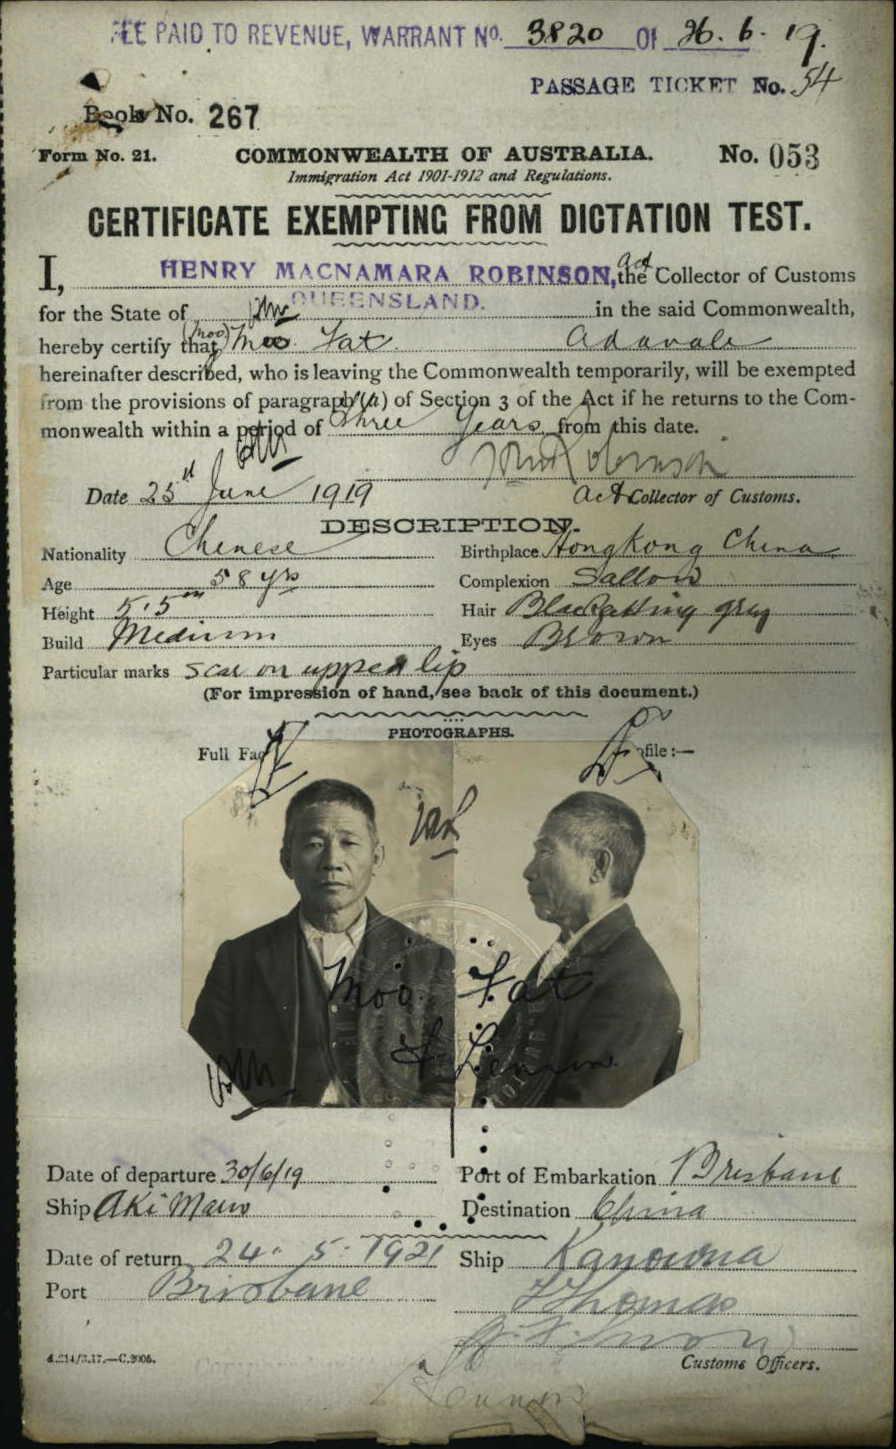 FEE PAID TO REVENUE, WARRANT No. 3820 Of 26.6.19.
PASSAGE TICKET No. 54
Book No. 267
Form No. 21. COMMONWEALTH OF AUSTRALIA. No. 053
Immigration Act 1901-1912 and Regulations.
CERTIFICATE EXEMPTING FROM DICTATION TEST.
I, HENRY MACNAMARA ROBINSON, act the Collector of Customs
for the State of QUEENSLAND. in the said Commonwealth,
hereby certify that (Moo) Fat Adavale
hereinafter described, who is leaving the Commonwealth temporarily, will be exempted
from the provisions of paragraph (a) of Section 3 of the Act if he returns to the Com-
monwealth within a period of three years from this date.
Date 25th June 1919 Act Collector of Customs.
DESCRIPTION.
Nationality Chinese Birthplace Hong Kong China
Age 58 yrs Complexion Sallow
Height 5.5 Hair Black getting grey
Build Medium Eyes Brown
Particular marks Scar on upper lip
(For impression of hand, see back of this document.)
PHOTOGRAPHS.
Full Fac ofile :—
Moo Fat
Date of departure 30/6/19 Port of Embarkation Brisbane
Ship Aki Maru Destination China
Date of return 24. 5. 1921 Ship Kanowna
Port Brisbane
Thomas
Customs Officers.